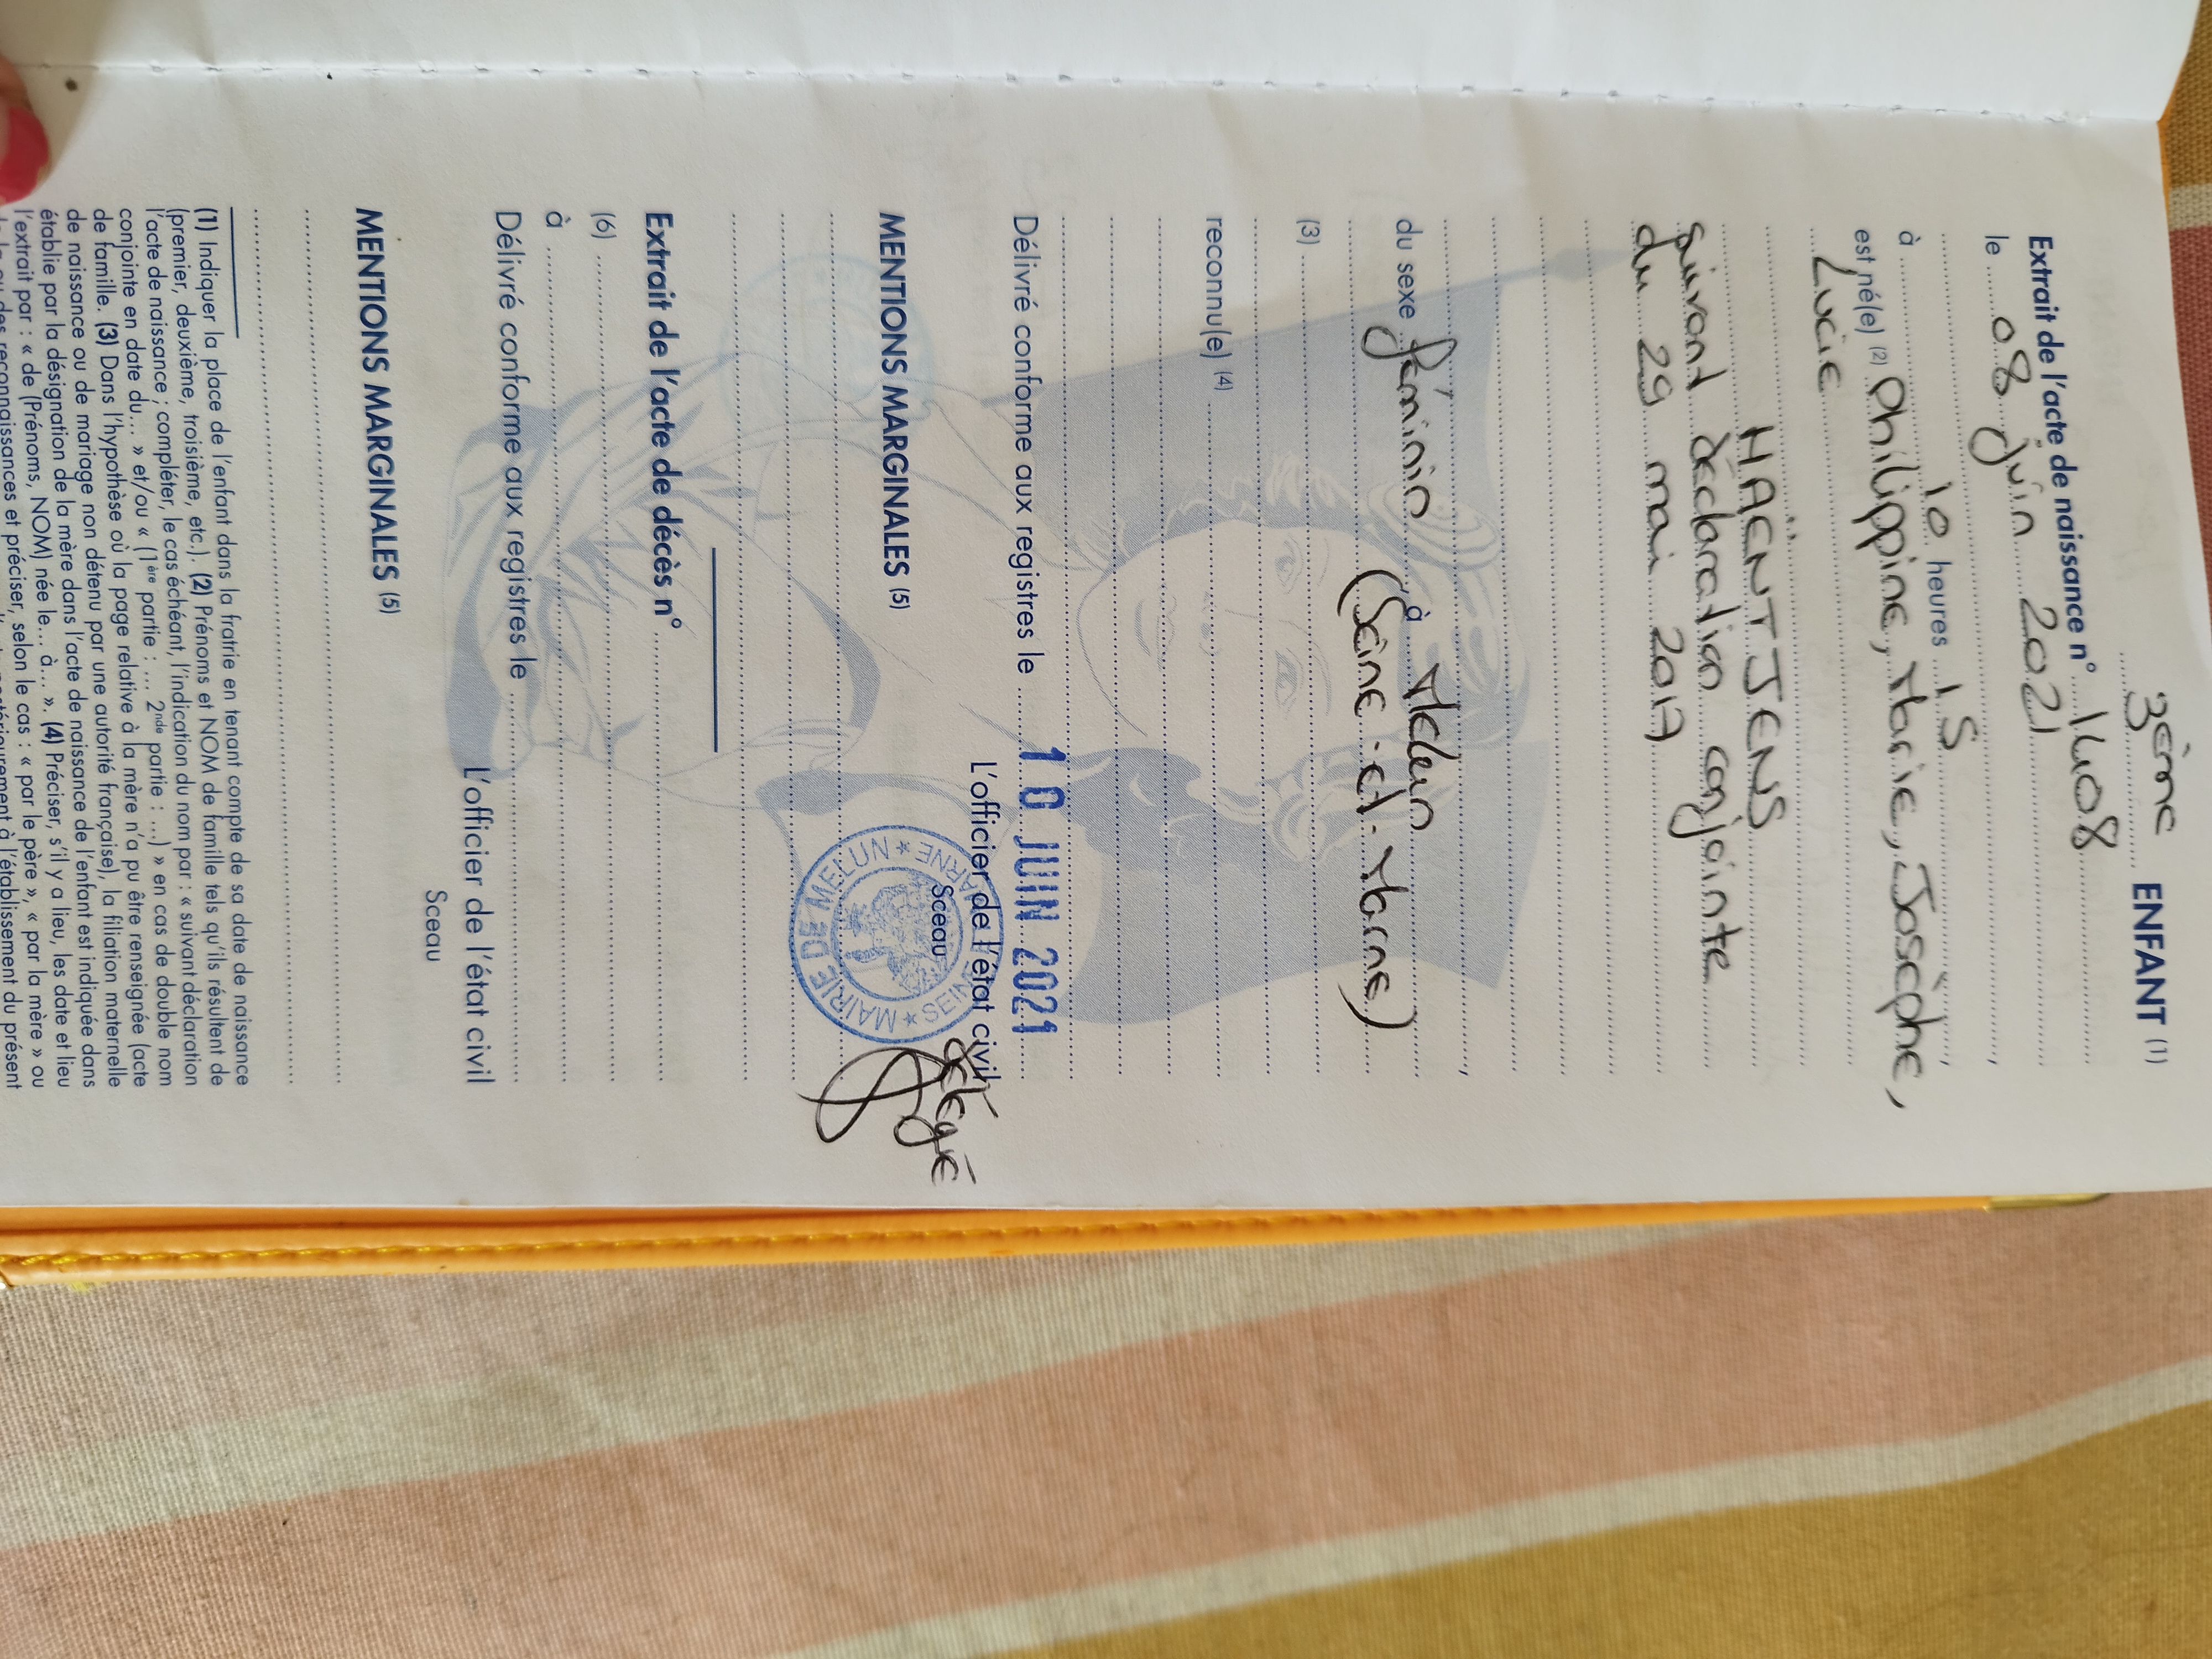 3ème ENFANT (1)
Extrait de l'acte de naissance n° 1408
le 08 juin 2021,
à 10 heures 15,
est né(e) (2) Philippine, Marie, Josèphe,
Lucie
HAËNTJENS
suivant déclaration conjointe
du 29 mai 2017
du sexe féminin, à Melun
(Seine-et-Marne)
(3)
reconnu(e) (4)
Délivré conforme aux registres le 10 JUIN 2021
L'officier de l'état civil
délégué
Sceau
MAIRIE DE MELUN * SEINE MARNE *
MENTIONS MARGINALES (5)
Extrait de l'acte de décès n°
(6)
à
Délivré conforme aux registres le
L'officier de l'état civil
Sceau
MENTIONS MARGINALES (5)
(1) Indiquer la place de l'enfant dans la fratrie en tenant compte de sa date de naissance
(premier, deuxième, troisième, etc.) (2) Prénoms et NOM de famille tels qu'ils résultent de
l'acte de naissance ; compléter, le cas échéant, l'indication du nom par : « suivant déclaration
conjointe en date du... » et/ou « (1ère partie : ... 2nde partie : ...) » en cas de double nom
de famille. (3) Dans l'hypothèse où la page relative à la mère n'a pu être renseignée (acte
de naissance ou de mariage non détenu par une autorité française), la filiation maternelle
établie par la désignation de la mère dans l'acte de naissance de l'enfant est indiquée dans
l'extrait par : « de (Prénoms, NOM) née le... à... ». (4) Préciser, s'il y a lieu, les date et lieu
de la ou des reconnaissances et préciser, selon le cas : « par le père », « par la mère » ou
à l'établissement du présent